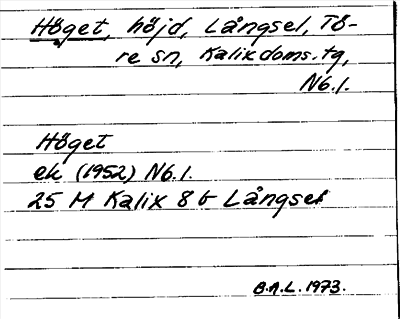 Höget, höjd, Långsel, Tö-
re sn, Kalix doms. tg,
Nb. l.
Höget
ek (1952) Nb. l.
25 M Kalix 8 b Långsel
B.A.L. 1973.